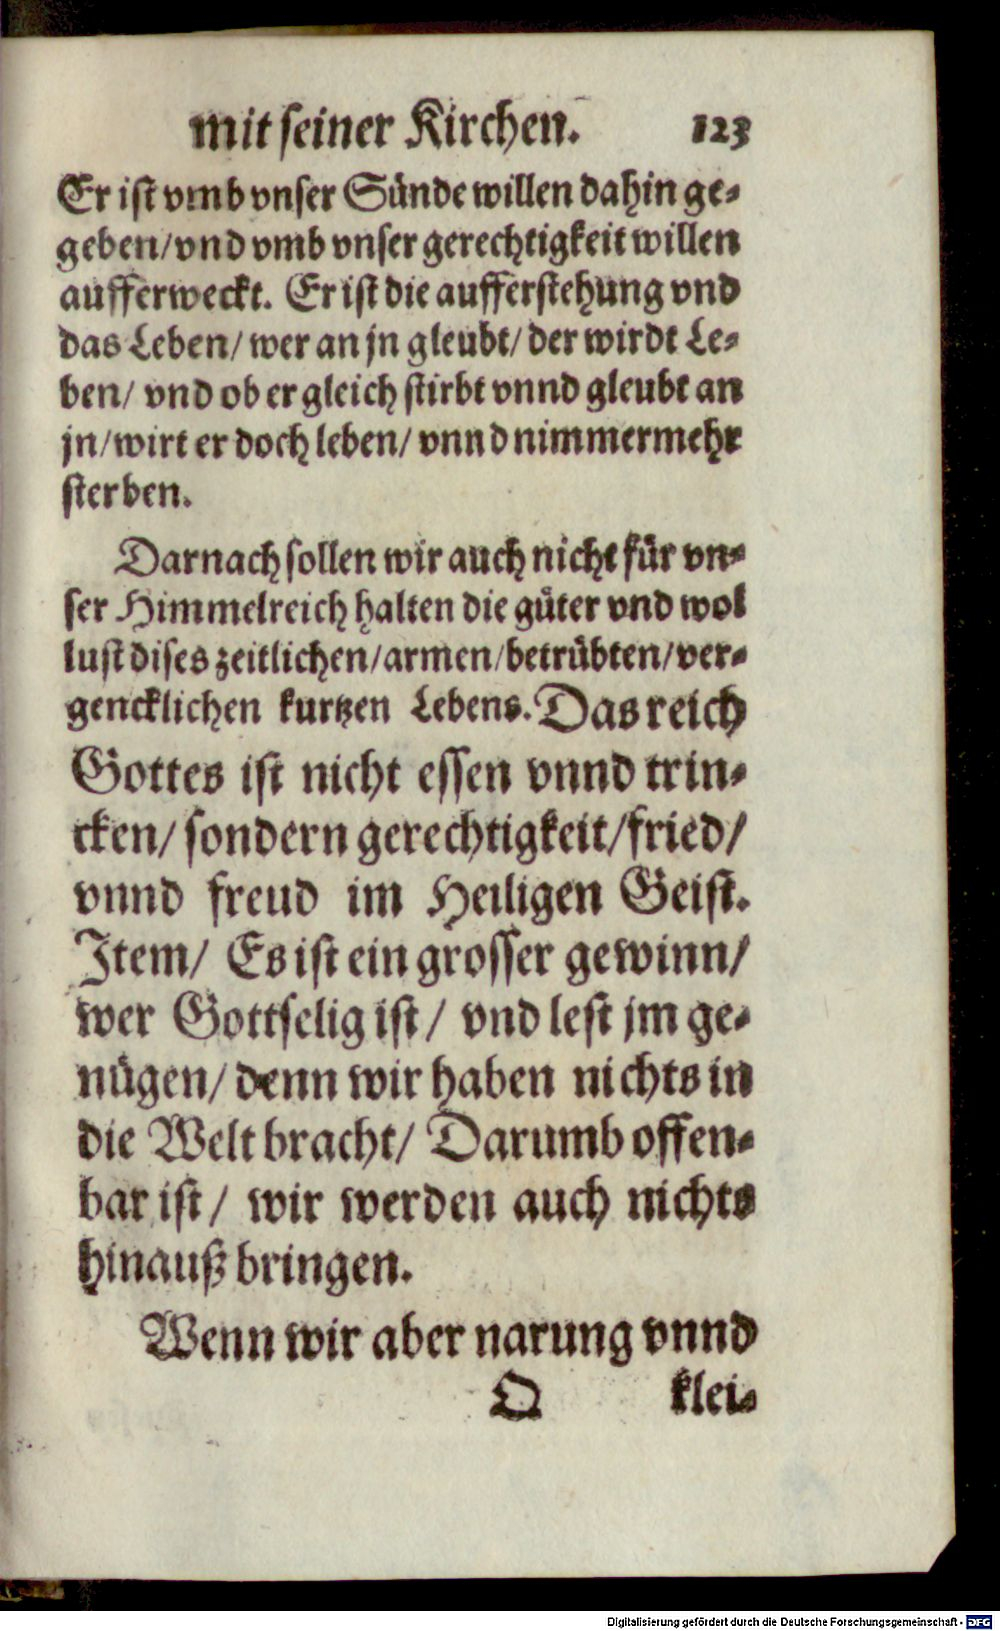 mit seiner Kirchen. 123
Er ist vmb vnser Sünde willen dahin ge-
geben/vnd vmb vnser gerechtigkeit willen
aufferweckt. Er ist die aufferstehung vnd
das Leben/ wer an jn gleubt/ der wirdt Le-
ben/ vnd ob er gleich stirbt vnnd gleubt an
jn/wirt er doch leben/ vnnd nimmermehr
sterben.
Darnach sollen wir auch nicht für vn-
ser Himmelreich halten die güter vnd wol
lust dises zeitlichen/armen/betrübten/ver-
gencklichen kurtzen Lebens. Das reich
Gottes ist nicht essen vnnd trin-
cken/ sondern gerechtigkeit/fried/
vnnd freud im Heiligen Geist.
Item/ Es ist ein grosser gewinn/
wer Gottselig ist/ vnd lest jm ge-
nügen/ denn wir haben nichts in
die Welt bracht/ Darumb offen-
bar ist/ wir werden auch nichts
hinauß bringen.
Wenn wir aber narung vnnd
Q klei-
Digitalisierung gefördert durch die Deutsche Forschungsgemeinschaft - DFG